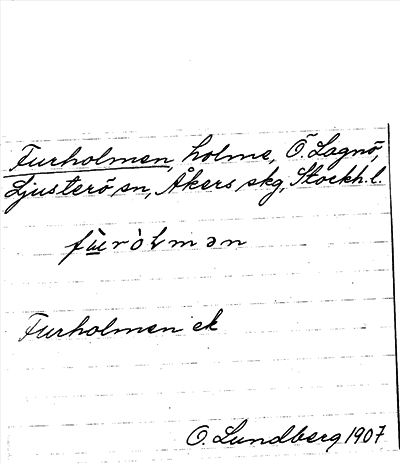 Furholmen, holme, Ö. Lagnö,
Ljusterö sn, Åkers skg, Stockh. l.
fùròlmən
Furholmen ek
O. Lundberg 1907